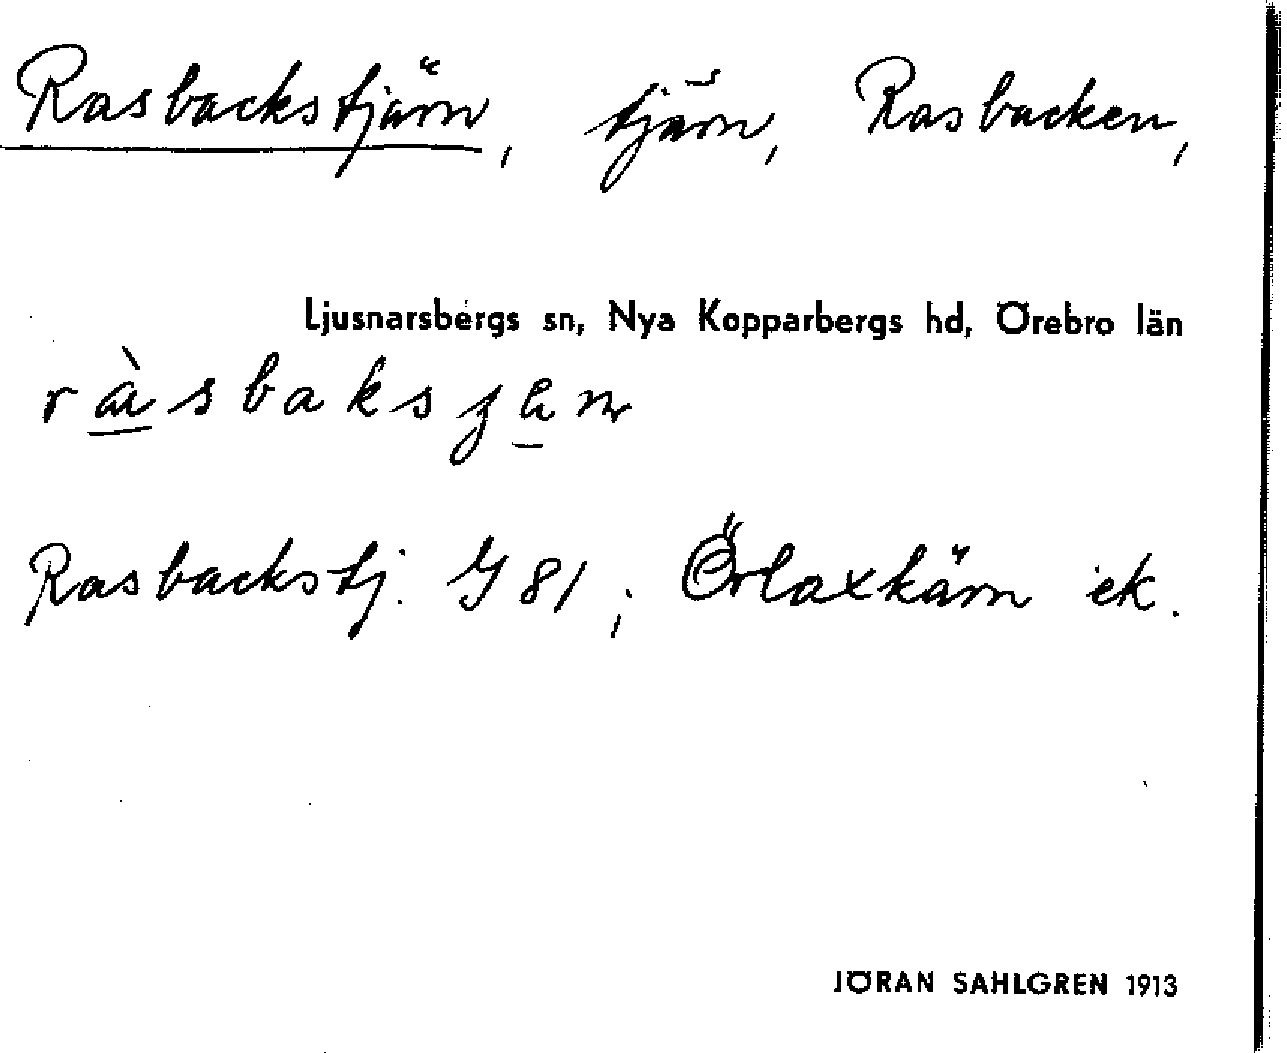 Rasbackstjärn, tjärn, Rasbacken,
Ljusnarsbergs sn, Nya Kopparbergs hd, Örebro län
Rasbackstj. G 81; Örlaxkärn ek.
JÖRAN SAHLGREN 1913